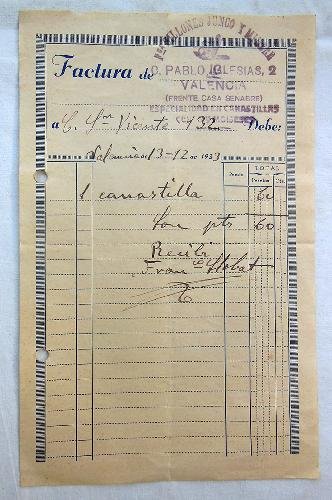 Fca SILLONES JUNCO Y MIMBRE
Factura de
C. PABLO IGLESIAS, 2
VALENCIA
(FRENTE CASA SENABRE)
ESPECIALIDAD EN CANASTILLAS
a C. Sn Vicente 132 Debe:
Valencia 13-12 de 1933
TOTAL
Precio Pesetas Cts.
1 canastilla 60
Son pts 60
Recibí
Franco